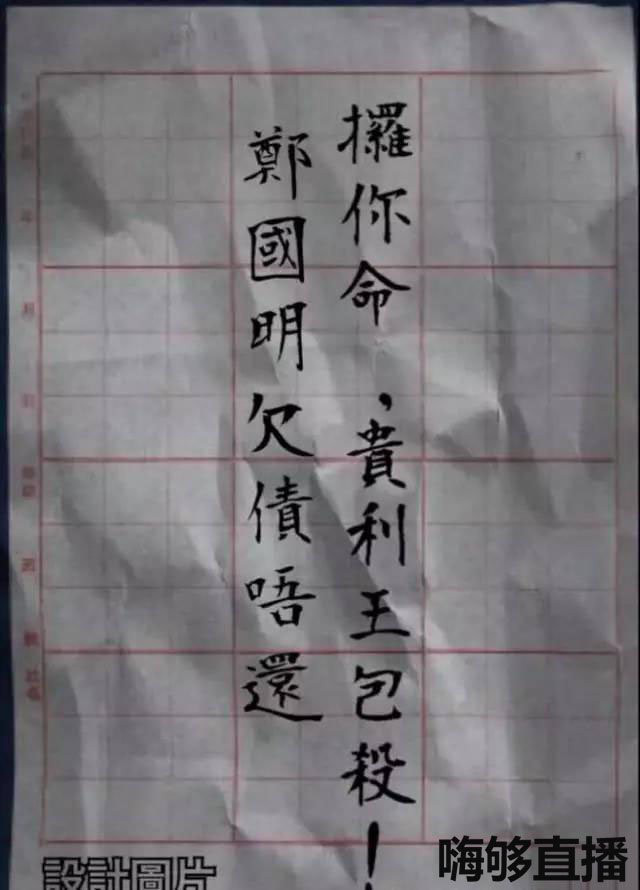 攞你命，貴利王包殺！
鄭國明欠債唔還
設計圖片
嗨够直播